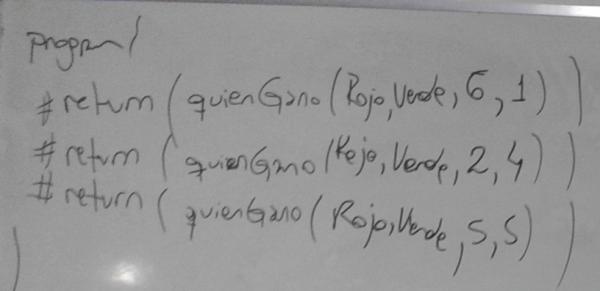 program {
# return (quienGano(Rojo,Verde,6,1))
# return (quienGano(Rojo,Verde,2,4))
# return (quienGano(Rojo,Verde,5,5))
}